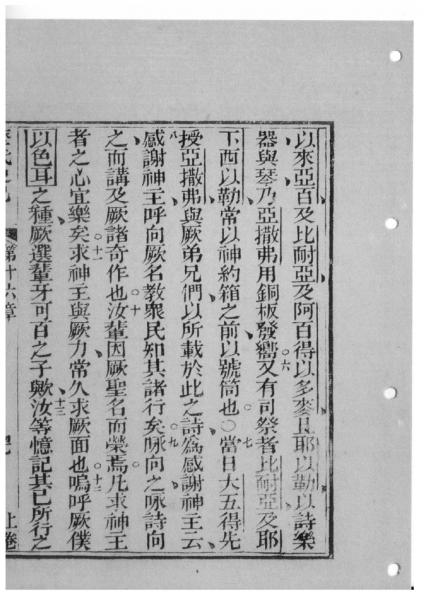 以來亞百及比耐亞及阿百得以多麥且耶以勒以詩樂
器與琴乃亞撒弗用銅板發嚮○六又有司祭者比耐亞及耶
下西以勒常以神約箱之前以號筒也○七當日大五得先
授亞撒弗與厥弟兄們以所載於此之詩為感謝神主云
八感謝神主呼向厥名教衆民知其諸行矣○九咏向之咏詩向
之而講及厥諸奇作也○十汝輩因厥聖名而榮焉凡求神主
者之心宜樂矣○十一求神主與厥力常久求厥面也○十二嗚呼厥僕
以色耳之種厥選輩牙可百之子歟○十三汝等憶記其已所行之
第十六章
上卷